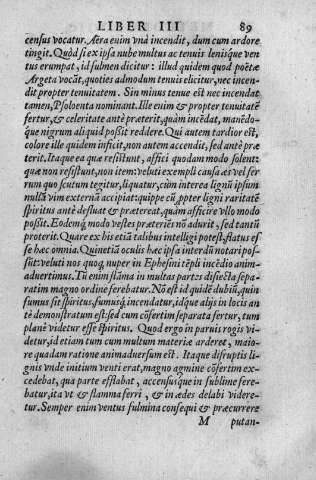 LIBER III 89
census vocatur. Aëra enim vnà incendit, dum cum ardore
tingit. Quòd si ex ipsa nube multus ac tenuis lenisque ven
tus erumpat, id fulmen dicitur: illud quidem quod poëtæ
Argeta vocãt, quoties admodum tenuis elicitur, nec incen
dit propter tenuitatem. Sin minus tenue est nec incendat
tamen, Psoloenta nominant. Ille enim & propter tenuitatẽ
fertur, & celeritate antè præterit, quàm incẽdat, manẽdo-
que nigrum aliquid possit reddere. Qui autem tardior est,
colore ille quidem inficit, non autem accendit, sed antè præ
terit. Itaque ea quæ resistunt, affici quodam modo solent:
quæ non resistunt, non item: veluti exempli causa æs vel fer
rum quo scutum tegitur, liquatur, cùm interea lignũ ipsum
nullã vim externã accipiat: quippe cũ, ꝓpter ligni raritatẽ
spiritus antè defluat & prætereat, quàm afficire vllo modo
possit. Eodemq; modo vestes præteriẽs nõ adurit, sed tantũ
proterit. Quare ex his etiã talibus intelligi potest, flatus es
se hæc omnia. Quinetiã oculis hæc ipsa interdũ notari pos-
sũt: veluti nos quoq; nuper in Ephesini tẽpli incẽdio anim-
aduertimus. Tũ enim flãma in multas partes disiecta sepa-
ratim magno ordine ferebatur. Nõ est id quidẽ dubiũ, quin
fumus sit spiritus, fumusq; incendatur, idque alijs in locis an
tè demonstratum est: sed cum cõfertim separata fertur, tum
planè videtur esse spiritus. Quod ergo in paruis rogis vi-
detur, id etiam tum cum multum materiæ arderet, maio-
re quadam ratione animaduersum est. Itaque disruptis li-
gnis vnde initium venti erat, magno agmine cõfertim ex-
cedebat, qua parte efflabat, accensusque in sublime fere-
batur, ita vt & flamma ferri, & in ædes delabi videre-
tur. Semper enim ventus fulmina consequi & præcurrere
M putan-